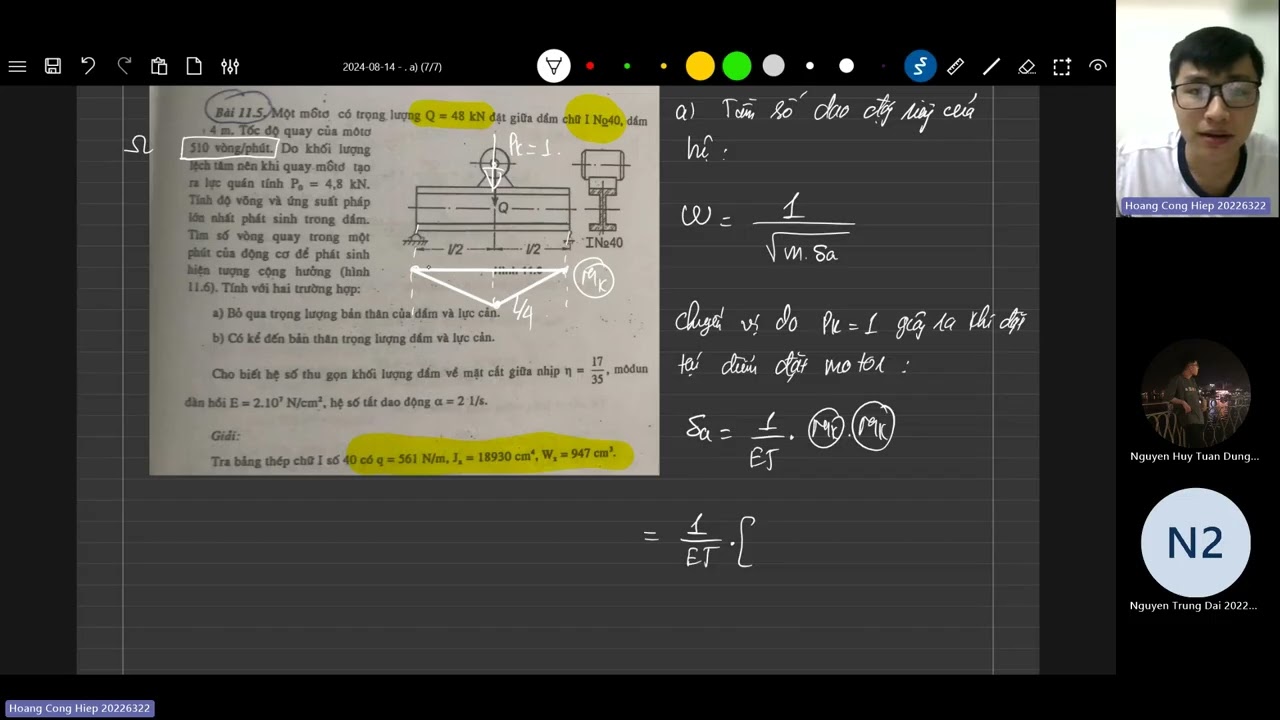 2024-08-14 - . a) (7/7)
Bài 11.5. Một môtơ có trọng lượng Q = 48 kN đặt giữa dầm chữ I №40, dầm
4 m. Tốc độ quay của môtơ
510 vòng/phút. Do khối lượng
lệch tâm nên khi quay môtơ tạo
ra lực quán tính P₀ = 4,8 kN.
Tính độ võng và ứng suất pháp
lớn nhất phát sinh trong dầm.
Tìm số vòng quay trong một
phút của động cơ để phát sinh
hiện tượng cộng hưởng (hình
11.6). Tính với hai trường hợp:
Ω
Pk = 1.
Q
l/2
l/2
I№40
Mk
L/4
a) Bỏ qua trọng lượng bản thân của dầm và lực cản.
b) Có kể đến bản thân trọng lượng dầm và lực cản.
Cho biết hệ số thu gọn khối lượng dầm về mặt cắt giữa nhịp η = 17/35, môđun
đàn hồi E = 2.10⁷ N/cm², hệ số tắt dao động α = 2 1/s.
Giải:
Tra bảng thép chữ I số 40 có q = 561 N/m, Jₓ = 18930 cm⁴, Wₓ = 947 cm³.
a) Tần số dao động riêng của
hệ :
ω = 1/√m.δa
chuyển vị do Pk = 1 gây ra khi đặt
tại điểm đặt motor :
δa = 1/EJ . Mk . Mk
= 1/EJ . [
Hoang Cong Hiep 20226322
Nguyen Huy Tuan Dung...
N2
Nguyen Trung Dai 2022...
Hoang Cong Hiep 20226322